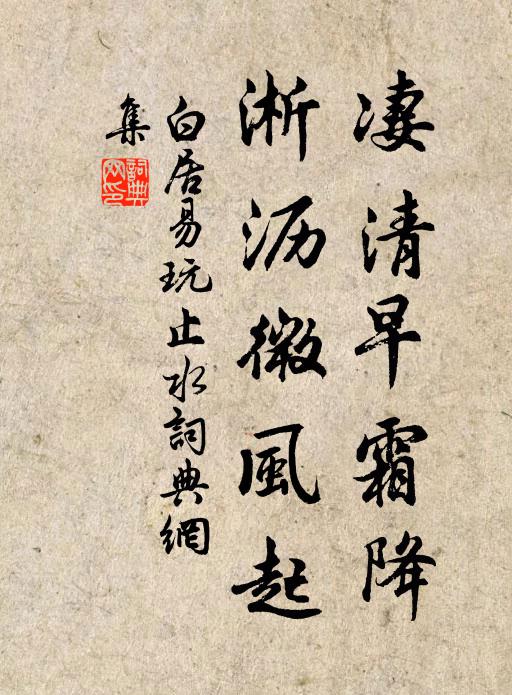 凄清早霜降
淅沥微風起
白居易玩止水詞典網
集
詞典网印